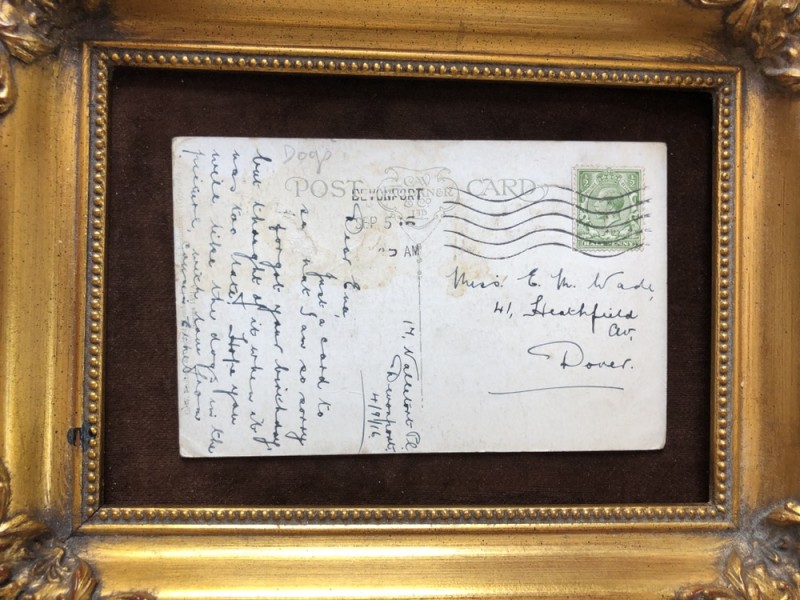 Dogs
POST CARD
DEVONPORT
SEP 5 16
AM
LTD
17, Valletort Pl.
Devonport.
4/9/16
Dear Ena,
Just a card to
say that I am so sorry
I forgot your birthday,
but thought of it when it
was too late. Hope you
will like the dogs in the
picture, with love from
cousin Ethel
Miss E. M. Wade,
41, Heathfield
Av,
Dover.
HALFPENNY